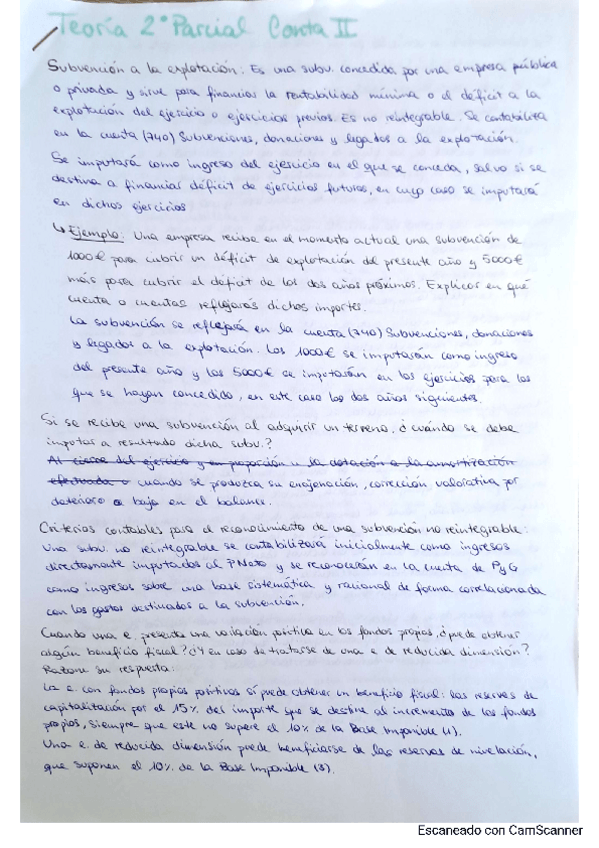 Teoría 2º Parcial Conta II
Subvención a la explotación: Es una subv. concedida por una empresa pública
o privada y sirve para financiar la rentabilidad mínima o el déficit a la
explotación del ejercicio o ejercicios previos. Es no reintegrable. Se contabiliza
en la cuenta (740) Subvenciones, donaciones y legados a la explotación.
Se imputará como ingreso del ejercicio en el que se conceda, salvo si se
destina a financiar déficit de ejercicios futuros, en cuyo caso se imputará
en dichos ejercicios
↳ Ejemplo: Una empresa recibe en el momento actual una subvención de
1000€ para cubrir un déficit de explotación del presente año y 5000€
más para cubrir el déficit de los dos años próximos. Explicar en qué
cuenta o cuentas reflejarás dichos importes.
La subvención se reflejará en la cuenta (740) Subvenciones, donaciones
y legados a la explotación. Los 1000€ se imputarán como ingreso
del presente año y los 5000€ se imputarán en los ejercicios para los
que se hayan concedido, en este caso los dos años siguientes.
Si se recibe una subvención al adquirir un terreno, ¿cuándo se debe
imputar a resultado dicha subv.?
Al cierre del ejercicio y en proporción a la dotación a la amortización
efectuada o cuando se produzca su enajenación, corrección valorativa por
deterioro o baja en el balance.
Criterios contables para el reconocimiento de una subvención no reintegrable:
Una subv. no reintegrable se contabilizará inicialmente como ingresos
directamente imputados al PNeto y se reconocerán en la cuenta de PyG
como ingresos sobre una base sistemática y racional de forma correlacionada
con los gastos destinados a la subvención.
Cuando una e. presenta una variación positiva en los fondos propios, ¿puede obtener
algún beneficio fiscal? ¿Y en caso de tratarse de una e. de reducida dimensión?
Razone su respuesta:
La e. con fondos propios positivos sí puede obtener un beneficio fiscal: las reservas de
capitalización por el 15% del importe que se destine al incremento de los fondos
propios, siempre que este no supere el 10% de la Base Imponible (1).
Una e. de reducida dimensión puede beneficiarse de las reservas de nivelación,
que suponen el 10% de la Base Imponible (3).
Escaneado con CamScanner